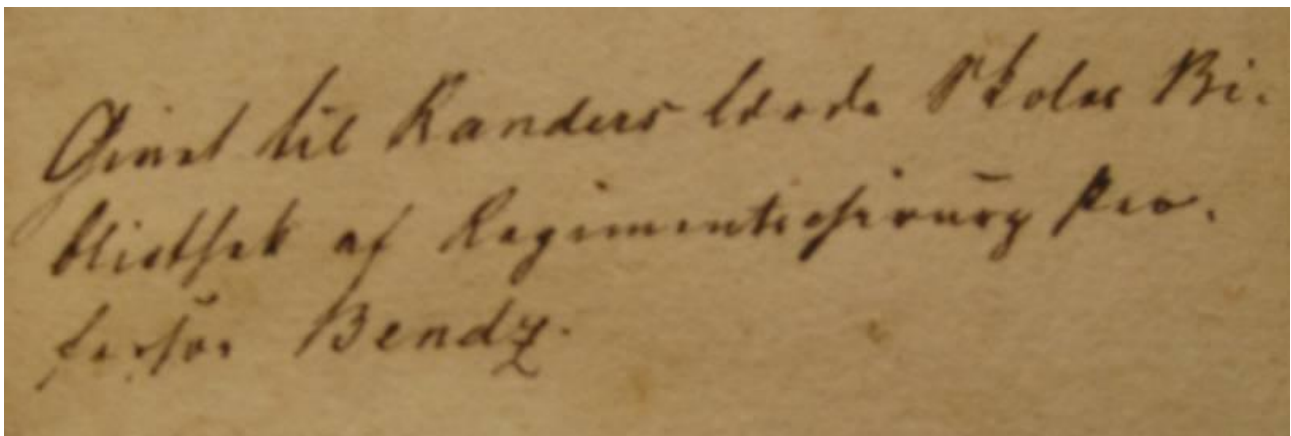 Givet til Randers lærde Skoles Bi-
bliothek af Regimentschirurg Pro-
fessor Bendz.